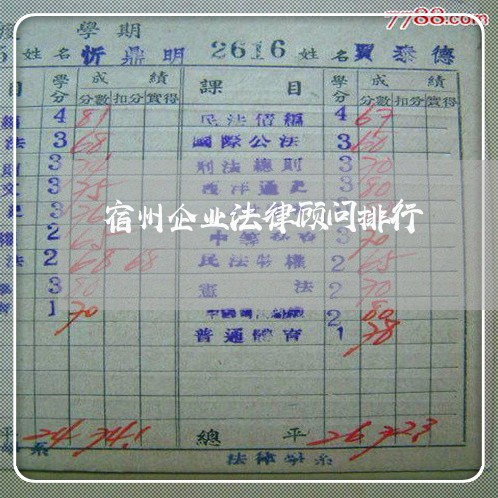 7788.com
學期
姓名 忻鼎明 2616 姓名 賈泰德
目 學分 成績 課目 學分 成績
分數 扣分 實得 分數 扣分 實得
4 81 民法債編 4 67
法 3 68 國際公法 3 60
3 刑法總則 3 70
3 75 西洋通史 3 80
宿州企业法律顾问排行
2 65 3 70
法 2 68 68 民法物權 2 65
3 80 憲法 2 70
1 70 2 80
普通體育 1 78
平 24 74.1 總平 26 72.3
系 法律學系